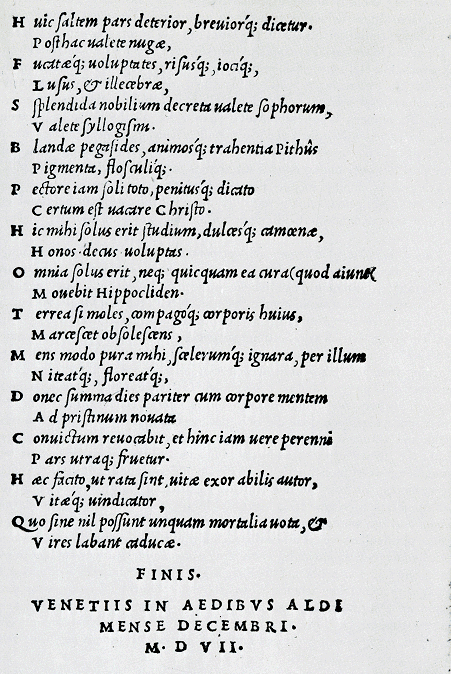 H uic saltem pars deterior, breuiorq; dicetur.
P osthac ualete nugæ,
F ucatæq́; uoluptates, risusq́;, iociq́;,
L usus, & illecebræ,
S splendida nobilium decreta ualete sophorum,
V alete syllogismi.
B landæ pegasides, animosq́; trahentia Pithûs
P igmenta, flosculiq́;.
P ectore iam soli toto, penitusq́; dicato
C ertum est uacare Christo.
H ic mihi solus erit studium, dulcesq́; camœnæ,
H onos. decus uoluptas.
O mnia solus erit, neq; quicquam ea cura(quod aiunt)
M ouebit Hippocliden.
T errea si moles, compagoq́; corporis huius,
M arcescet obsolescens,
M ens modo pura mihi, scelerumq́; ignara, per illum
N iteatq́;, floreatq́;,
D onec summa dies pariter cum corpore mentem
A d pristinum nouata
C onuictum reuocabit, et hinc iam uere perenni
P ars utraq; fruetur.
H æc facito, ut rata sint, uitæ exorabilis autor,
V itæq́; uindicator,
Q uo sine nil possunt unquam mortalia uota, &
V ires labant caducæ.
FINIS.
VENETIIS IN AEDIBVS ALDI
MENSE DECEMBRI.
M. D VII.